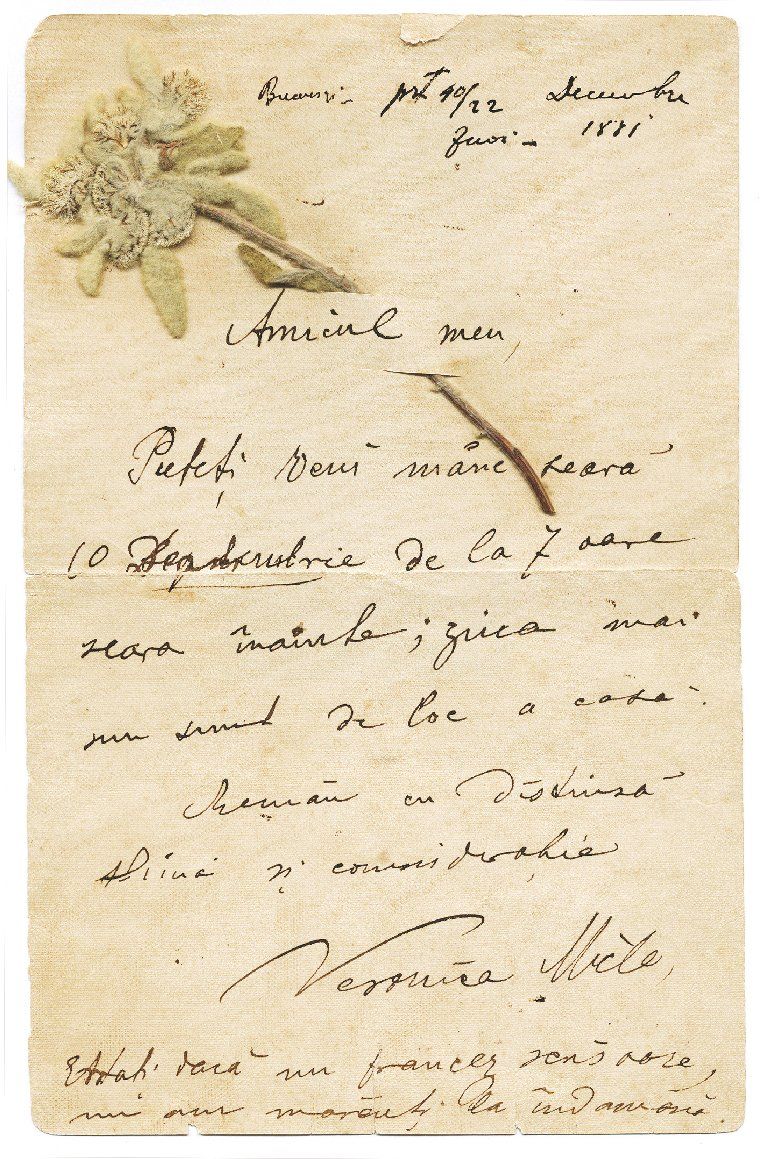 București 10/22 Decembre
Juoi - 1881
Amicul meu,
Puteți veni mâne seară
10 Decembrie de la 7 oare
seara înainte; ziua mai
nu sunt de loc a casă.
Remân cu distinsă
stimă și considerație
Veronica Micle,
dacă nu francez
nu am la îndamână.